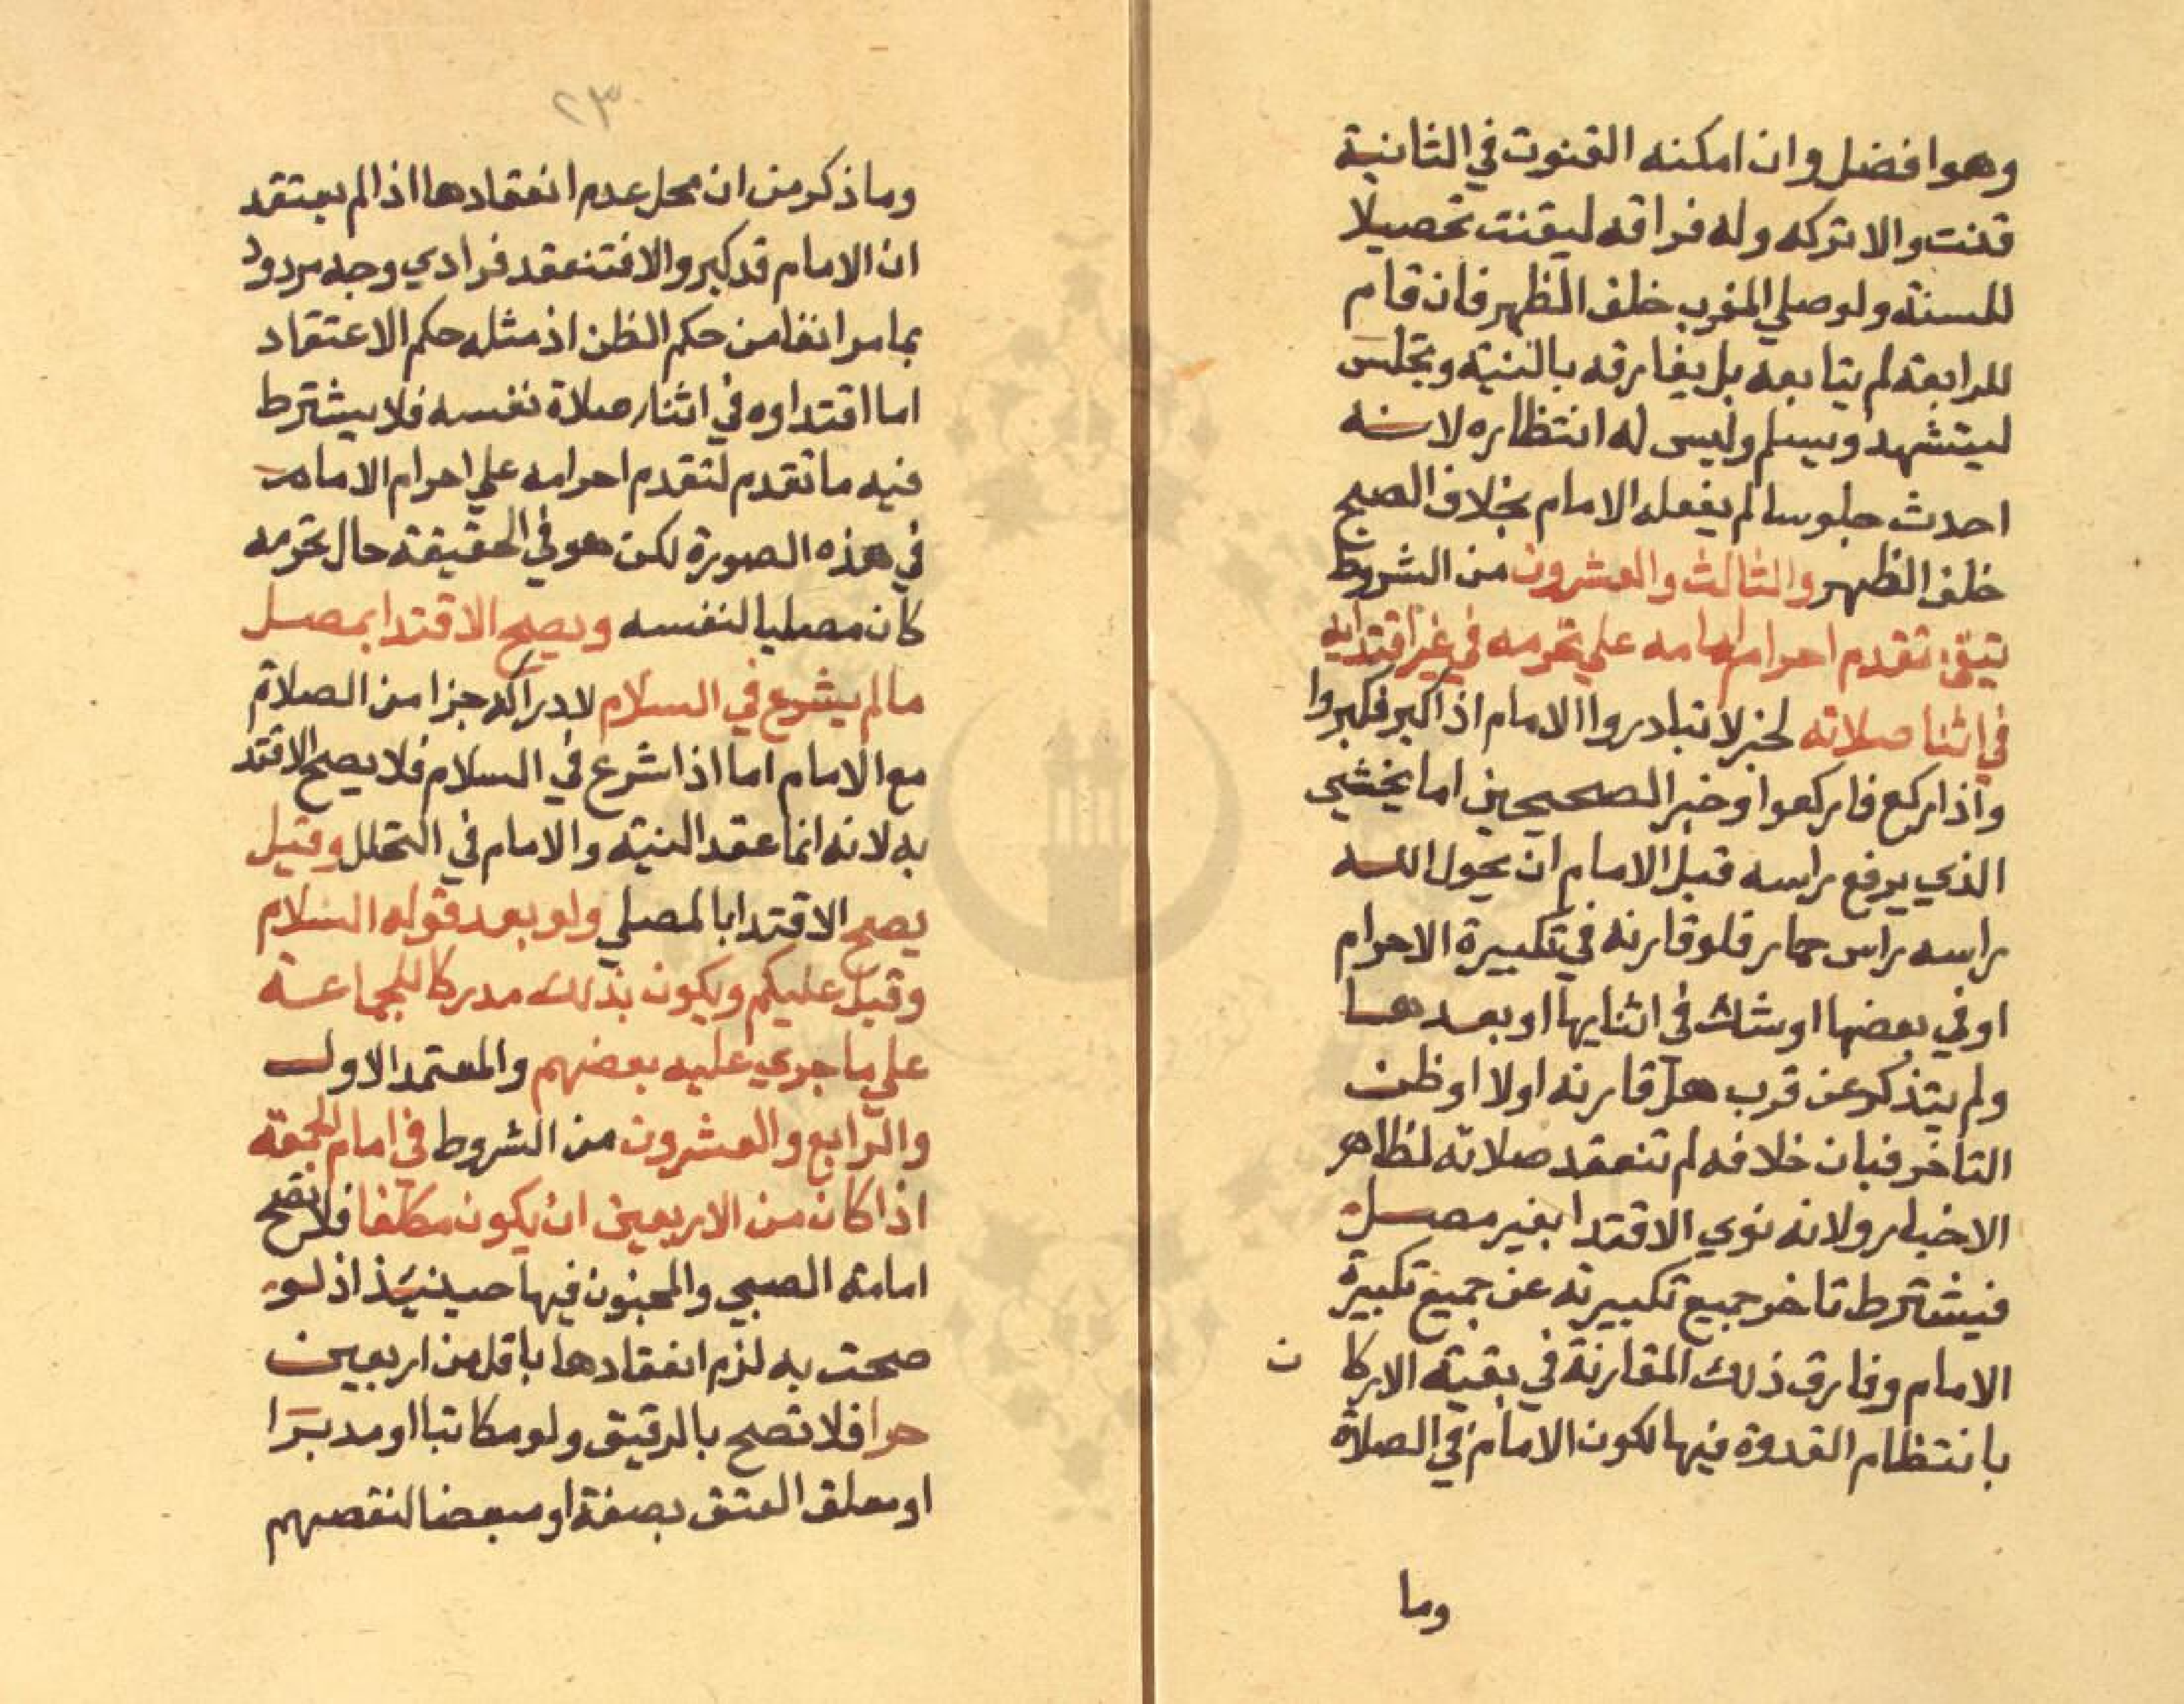 وهو افضل وان امكنه القنوت في الثانية
قنت والا تركه وله فراقه ليقنت تحصيلا
للسنة ولو صلي المغرب خلف الظهر فان قام
للرابعة لم يتابعه بل يفارقه بالنية ويجلس
ليتشهد ويسلم وليس له انتظاره لانه
احدث جلوسا لم يفعله الامام بخلاف الصبح
خلف الظهر والثالث والعشرون من الشروط
تيقن تقدم احرام امامه علي تحرمه في غير اقتدايه
في اثنا صلاته لخبر لا تبادروا الامام اذا كبر فكبروا
واذا ركع فاركعوا وخبر الصحيحين اما يخشي
الذي يرفع راسه قبل الامام ان يحول الله
راسه راس حمار فلو قارنه في تكبيرة الاحرام
او في بعضها او شك في اثنايها او بعدها
ولم يتذكر عن قرب هل قارنه اولا او ظن
التاخر فبان خلافه لم تنعقد صلاته لظاهر
الاخبار ولانه نوي الاقتدا بغير مصل
فيشترط تاخر جميع تكبيرته عن جميع تكبيرة
الامام وفارق ذلك المقارنة في بقية الاركا ن
بانتظام القدوة فيها لكون الامام في الصلاة
وما
٢٣
وما ذكر من ان محل عدم انعقادها اذا لم يعتقد
ان الامام قد كبر والا فتنعقد فرادي وجه مردود
بما مر انفا من حكم الظن اذ مثله حكم الاعتقاد
اما اقتداوه في اثنا صلاة نفسه فلا يشترط
فيه ما تقدم لتقدم احرامه علي احرام الامام
في هذه الصورة لكن هو في الحقيقة حال تحرمه
كان مصليا لنفسه ويصح الاقتدا بمصل
ما لم يشرع في السلام لادراكه جزا من الصلاة
مع الامام اما اذا شرع في السلام فلا يصح الاقتد
به لانه انما عقد النية والامام في التحلل وقيل
يصح الاقتدا بالمصلي ولو بعد قوله السلام
وقبل عليكم ويكون بذلك مدركا للجماعة
علي ما جري عليه بعضهم والمعتمد الاول
والرابع والعشرون من الشروط في امام الجمعة
اذا كان من الاربعين ان يكون مكلفا فلا تصح
امامة الصبي والمجنون فيها حينيذ اذ لو
صحت به لزم انعقادها باقل من اربعين
حرا فلا تصح بالرقيق ولو مكاتبا او مدبرا
او معلق العتق بصفة او مبعضا لنقصهم